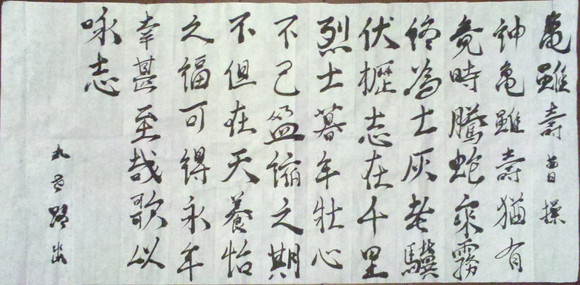 龜雖壽 曹操
神亀雖壽猶有
竟時騰蛇乘霧
終為土灰老驥
伏櫪志在千里
烈士暮年壯心
不已盈縮之期
不但在天養怡
之福可得永年
幸甚至哉歌以
咏志